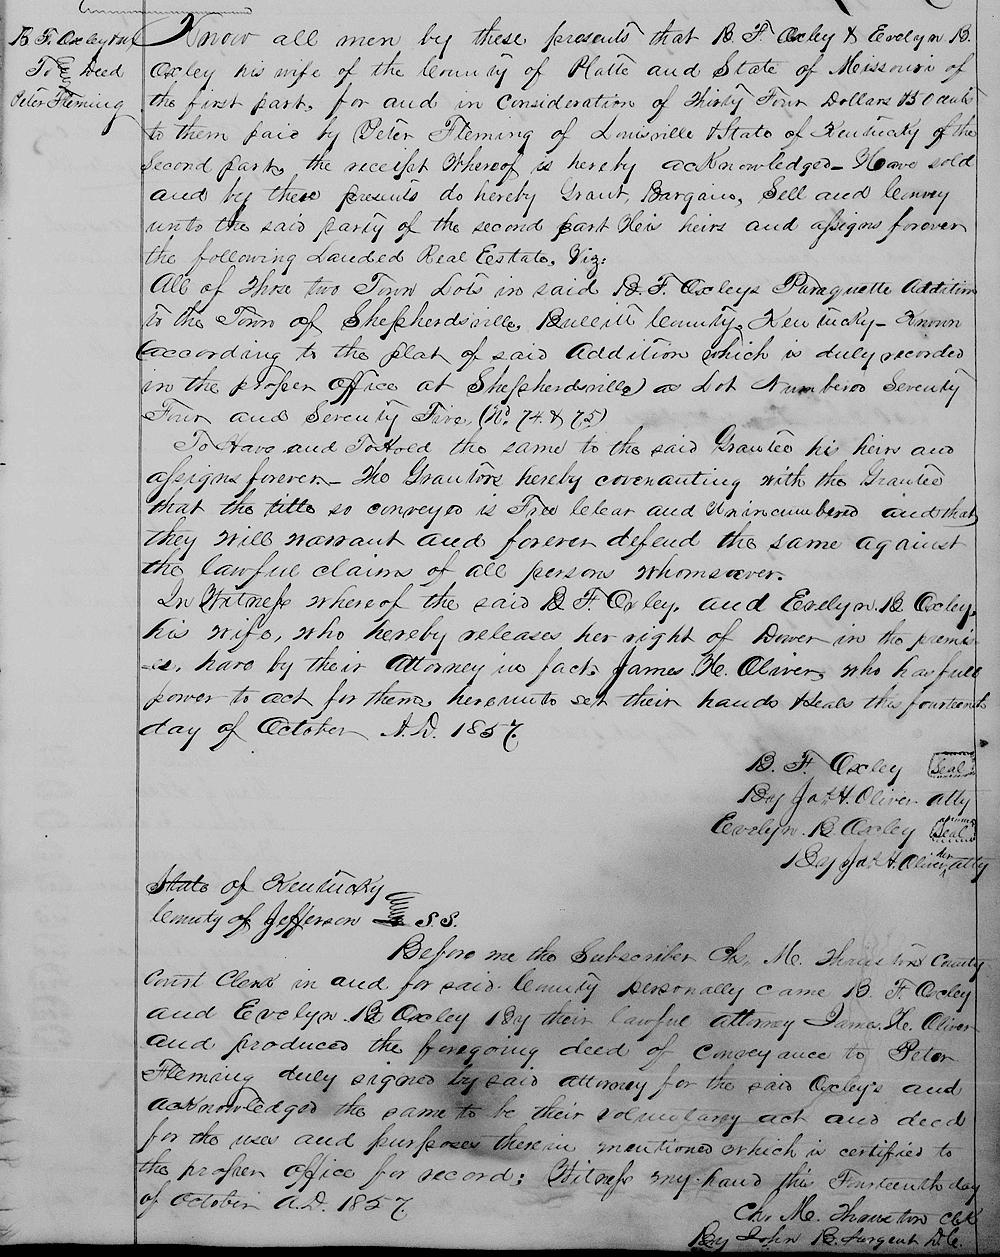 B F. Oxley & wf
To Deed
Peter Fleming
Know all men by these presents that B F Oxley & Evelyn B.
Oxley his wife of the County of Platte and State of Missouri of
the first part, for and in consideration of Thirty Four Dollars & 50 cents
to them paid by Peter Fleming of Louisville & State of Kentucky of the
Second part, the receipt whereof is hereby acknowledged— Have sold
and by these presents do hereby Grant, Bargain, Sell and Convey
unto the said party of the second part His heirs and assigns forever
the following Landed Real Eestate, Viz:
All of those two Town Lots in said B. F. Oxleys Paraquette Addition
to the Town of Shepherdsville, Bullitt County, Kentucky— Known
(according to the plat of said Addition which is duly recorded
in the proper office at Shepherdsville) as Lot Numbered Seventy
Four and Seventy Five, (No 74. & 75)
To Have and To Hold the same to the said Grantee his heirs and
assigns forever— The Grantors hereby covenanting with the Grantee
that the title so conveyed is Free Clear and Unincumbered and that
they will warrant and forever defend the same against
the lawful claims of all persons whomsoever.
In Witness whereof the said B F Oxley, and Evelyn. B Oxley,
his wife, who hereby releases her right of Dower in the premis
-es, have by their attorney in fact, James H. Oliver, who has full
power to act for them, hereunto set their hands & seals this fourteenth
day of October A.D. 1857
B. F. Oxley Seal
By Jas H. Oliver atty
Evelyn. B Oxley Seal
By Jas H. Oliver her atty
State of Kentucky
County of Jefferson S.S.
Before me the Subscriber Ch. M. Thruston County
Court Clerk in and for said County personally came B. F Oxley
and Evelyn. B Oxley By their lawful attorney James. H. Oliver
and produced the foregoing deed of conveyance to Peter
Fleming duly signed by said attorney for the said Oxley's and
acknowledged the same to be their voluntary act and deed
for the uses and purposes therein mentioned which is certified to
the proper office for record; Witness my hand this Fourteenth day
of October A.D. 1857
Ch. M. Thruston Clk
By John B. Surgent D.C.